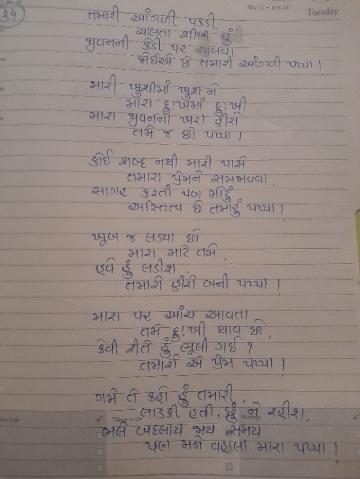 34
Tuesday
તમારી આંગળી પકડી
ચાલતા શીખી છું
જીવનની કેડી પર ચાલવા
જોઈએ છે તમારી આંગળી પપ્પા !
મારી ખુશીમાં ખુશ ને
મારા દુઃખમાં દુઃખી
મારા જીવનના ખરા હીરો
તમે જ છો પપ્પા !
કોઈ શબ્દ નથી મારી પાસે
તમારા પ્રેમને સમજાવવા
સાગર કરતાં પણ મોટું
અસ્તિત્વ છે તમારું પપ્પા !
ખૂબ જ લડ્યા છો
મારા માટે તમે
હવે હું લડીશ
તમારી હીરો બની પપ્પા !
મારા પર આંચ આવતા
તમે દુઃખી થાવ છો
કેવી રીતે હું ભૂલી ગઈ ?
તમારો એ પ્રેમ પપ્પા !
ગમે તે કહો હું તમારી
લાડકી હતી, છું ને રહીશ
ભલે બદલાય જાય સમય
પણ મને વહાલા મારા પપ્પા !